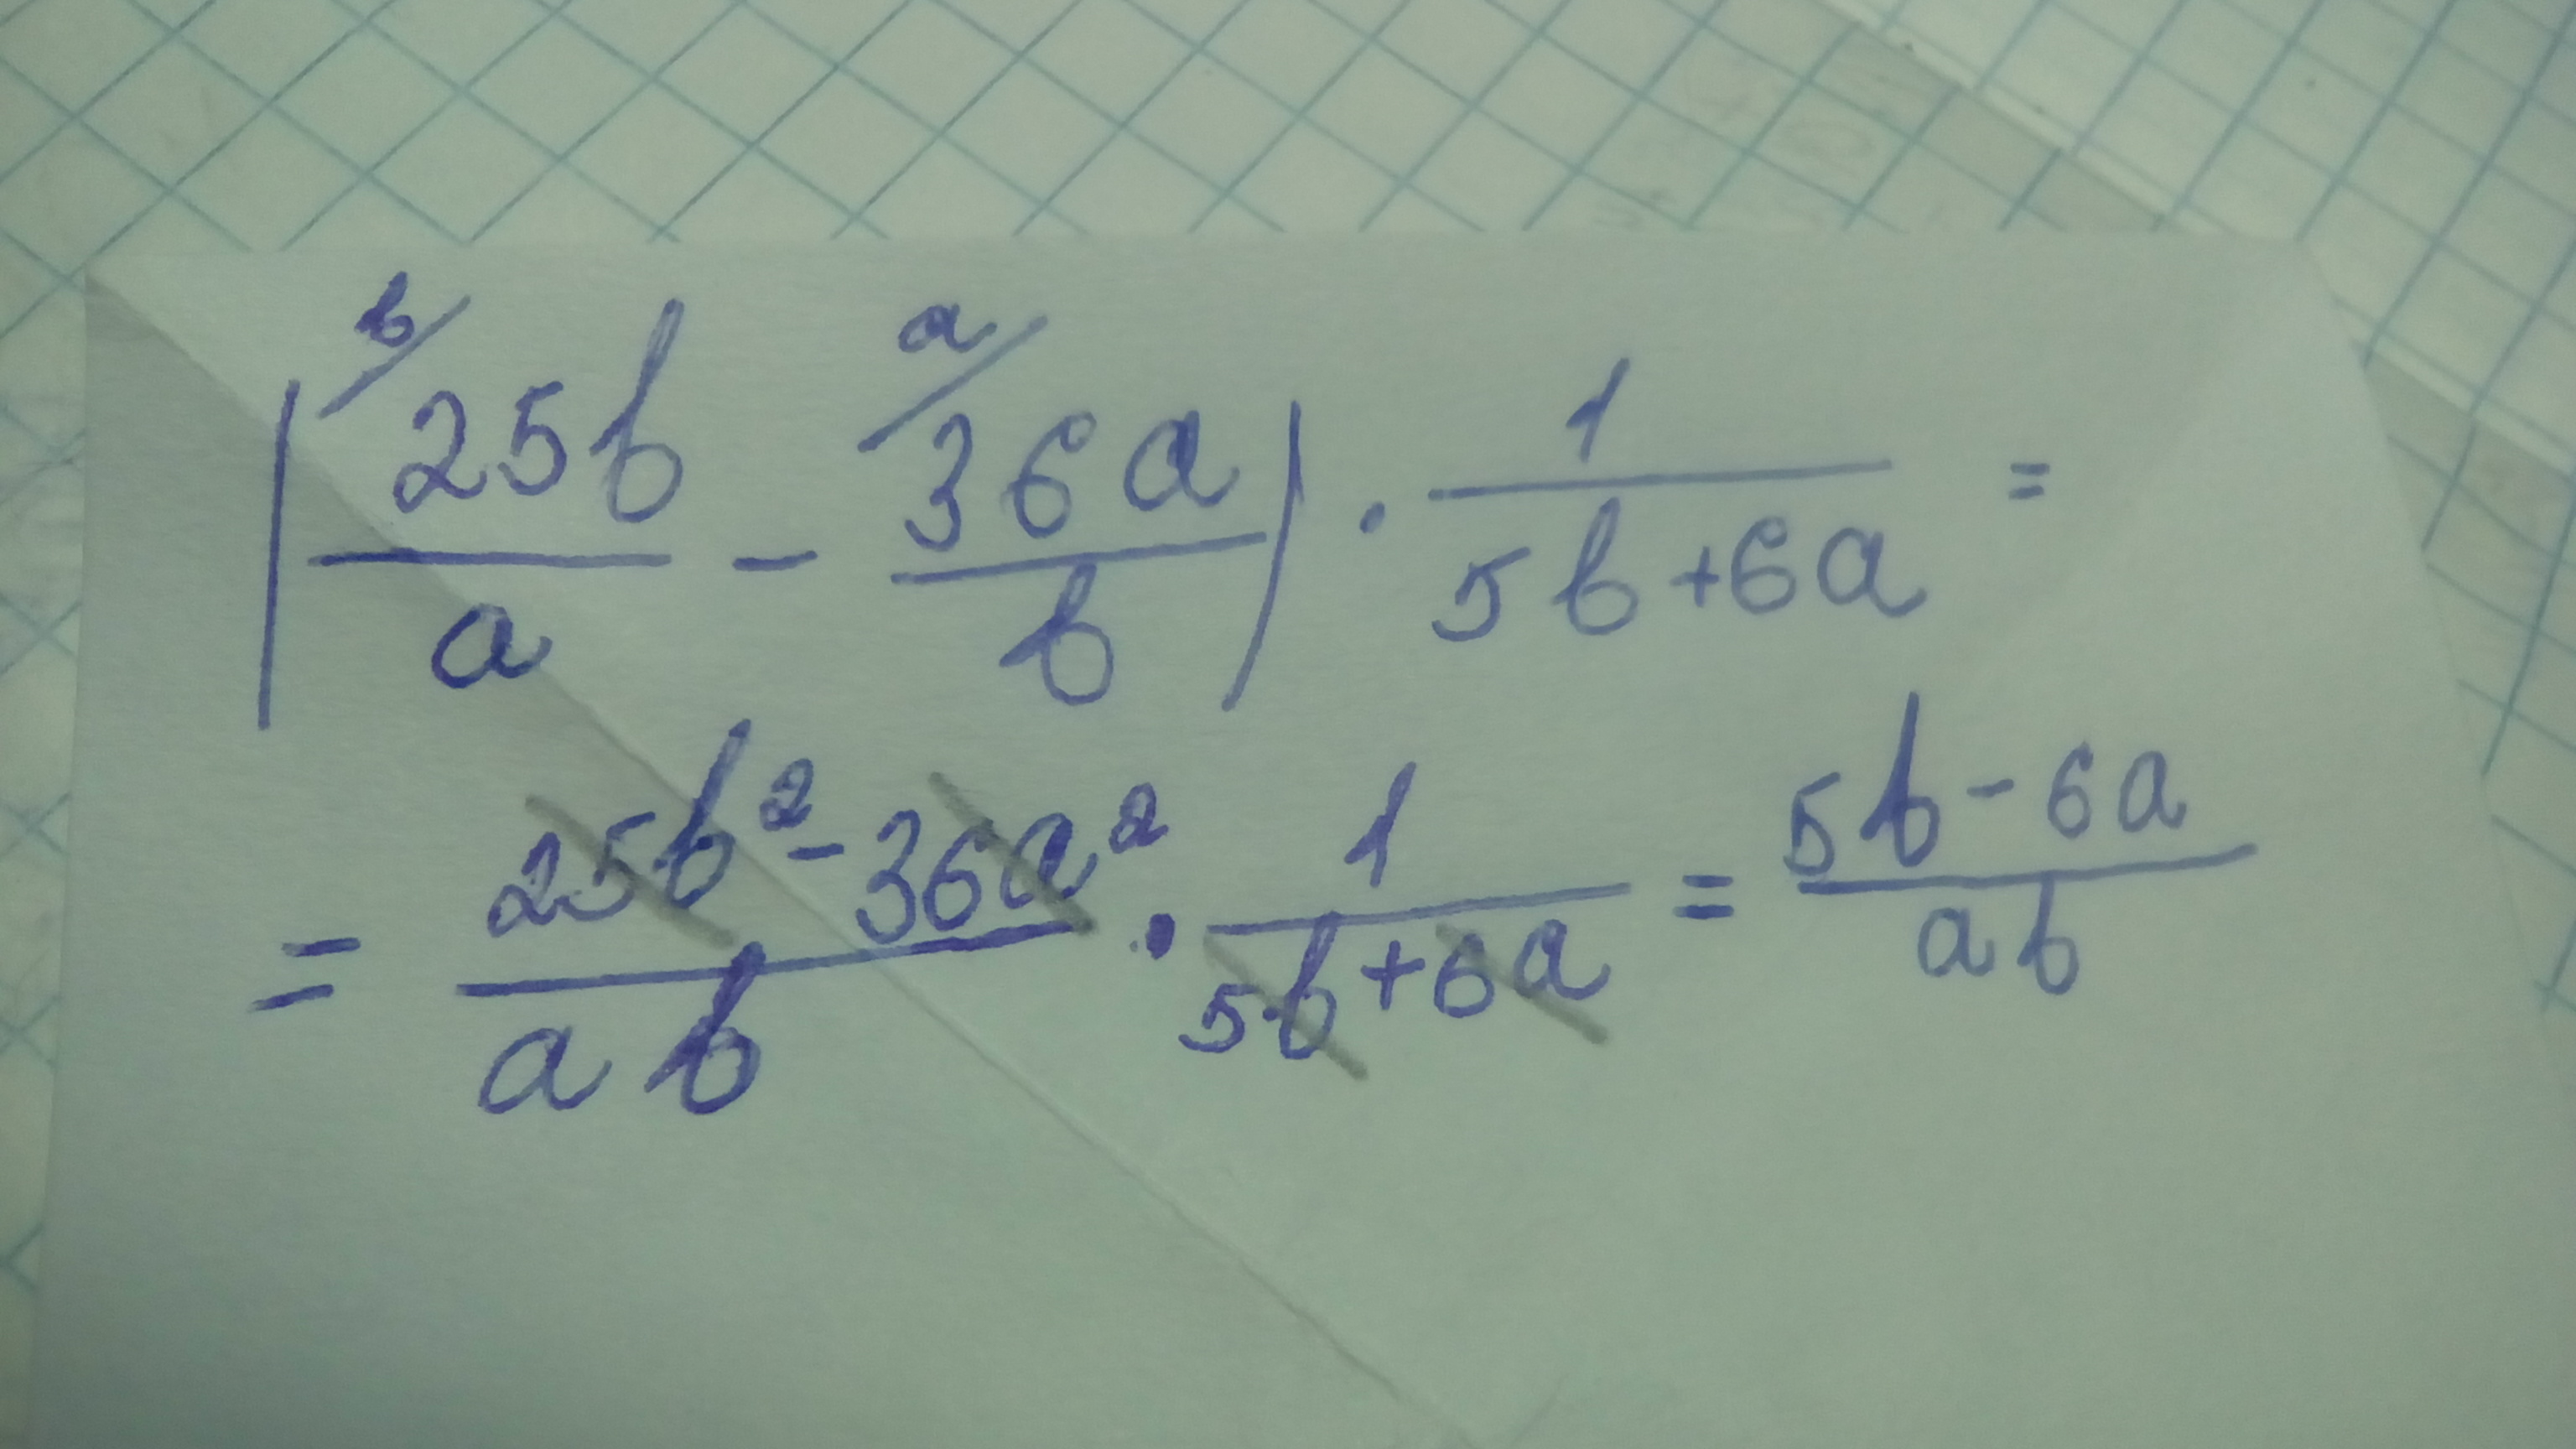 (b/ 25b/a - a/ 36a/b) · 1/(5b+6a) =
= (25b²-36a²)/(ab) · 1/(5b+6a) = (5b-6a)/(ab)